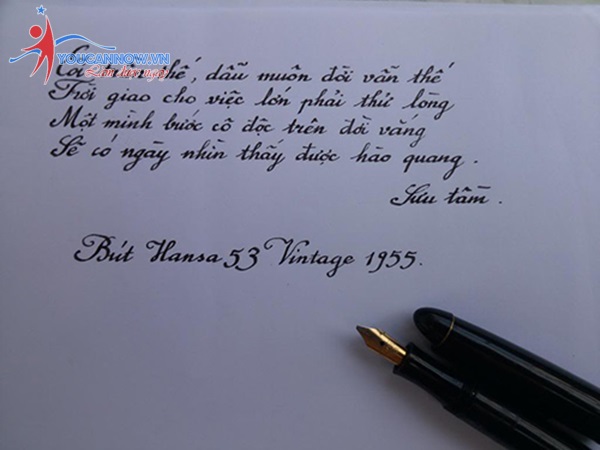 YOUCANNOW.VN
thế, dẫu muôn đời vẫn thế
Trời giao cho việc lớn phải thử lòng
Một mình bước cô độc trên đời vắng
Sẽ có ngày nhìn thấy được hào quang.
Sưu tầm.
Bút Hansa 53 Vintage 1955.